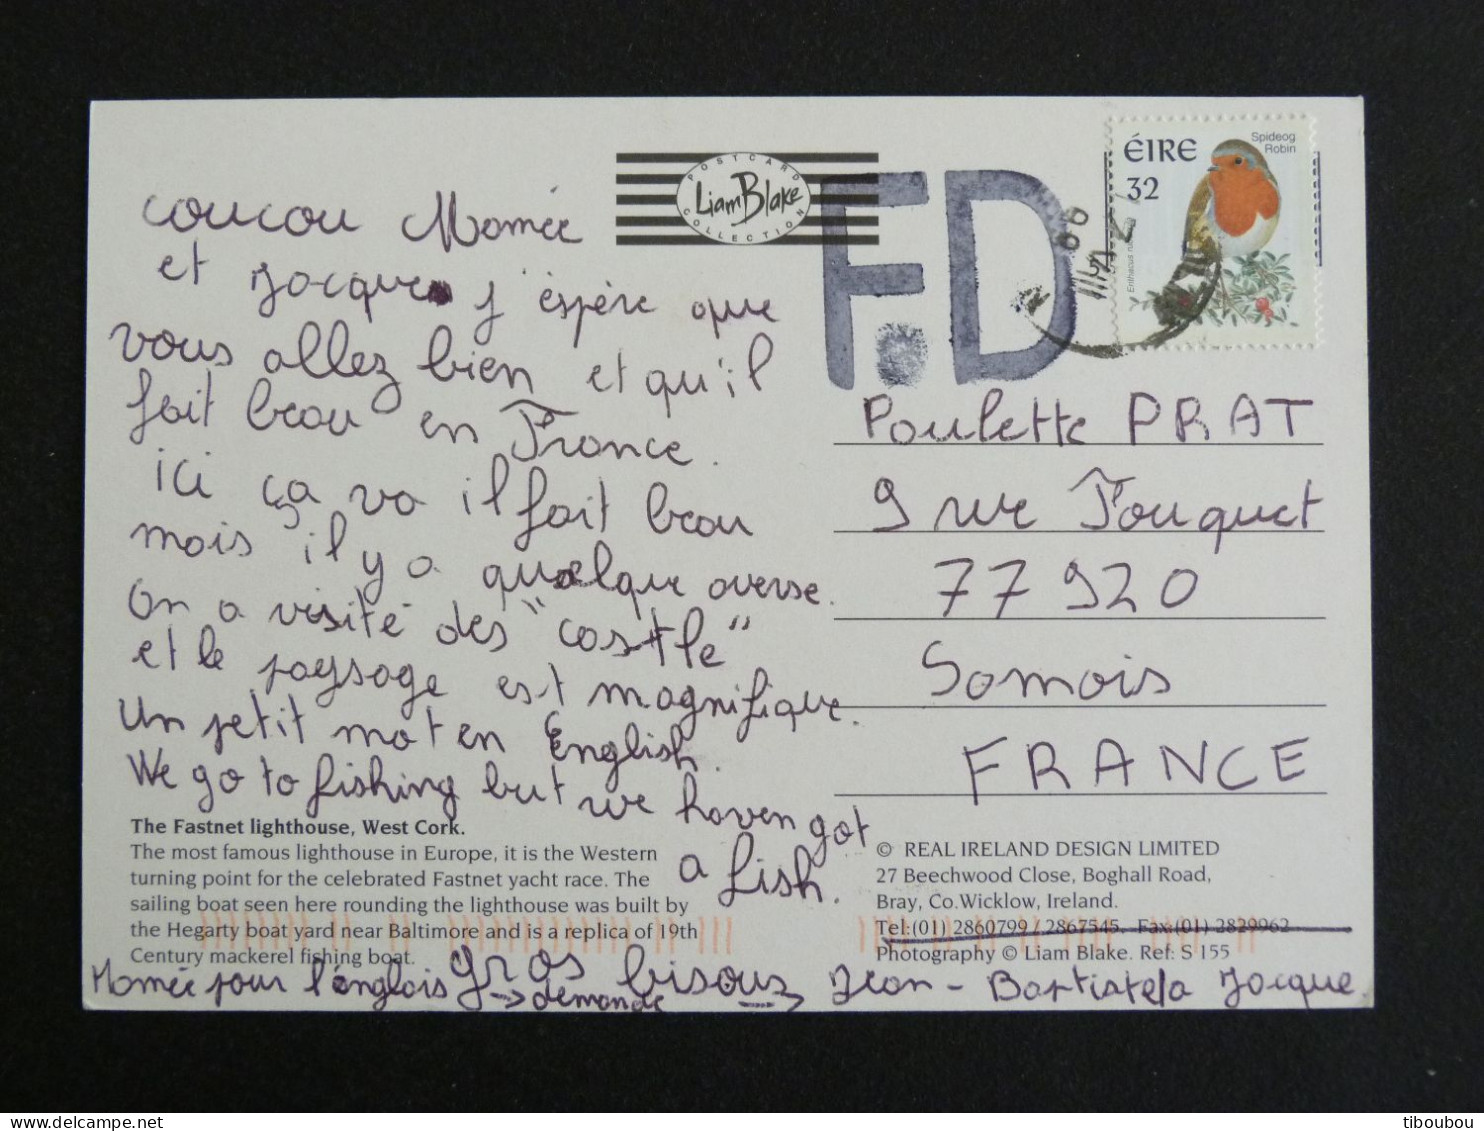 POSTCARD
Liam Blake
COLLECTION
F.D
ÉIRE
32
Spideog
Robin
coucou Mamée
et Jacques j'éspère que
vous allez bien et qu'il
fait beau en France.
ici ça va il fait beau
mais il y a quelque averse.
On a visité des "castle"
et le paysage est magnifique.
Un petit mot en English.
We go to fishing but we haven got
a fish.
Paulette PRAT
9 rue Fouquet
77920
Samois
FRANCE
The Fastnet lighthouse, West Cork.
The most famous lighthouse in Europe, it is the Western
turning point for the celebrated Fastnet yacht race. The
sailing boat seen here rounding the lighthouse was built by
the Hegarty boat yard near Baltimore and is a replica of 19th
Century mackerel fishing boat.
© REAL IRELAND DESIGN LIMITED
27 Beechwood Close, Boghall Road,
Bray, Co.Wicklow, Ireland.
Tel:(01) 2860799 / 2867545. Fax:(01) 2829962
Photography © Liam Blake. Ref: S 155
gros bisous Jean-Baptiste
Mamée pour l'anglais → demande → a Jacque
tiboubou